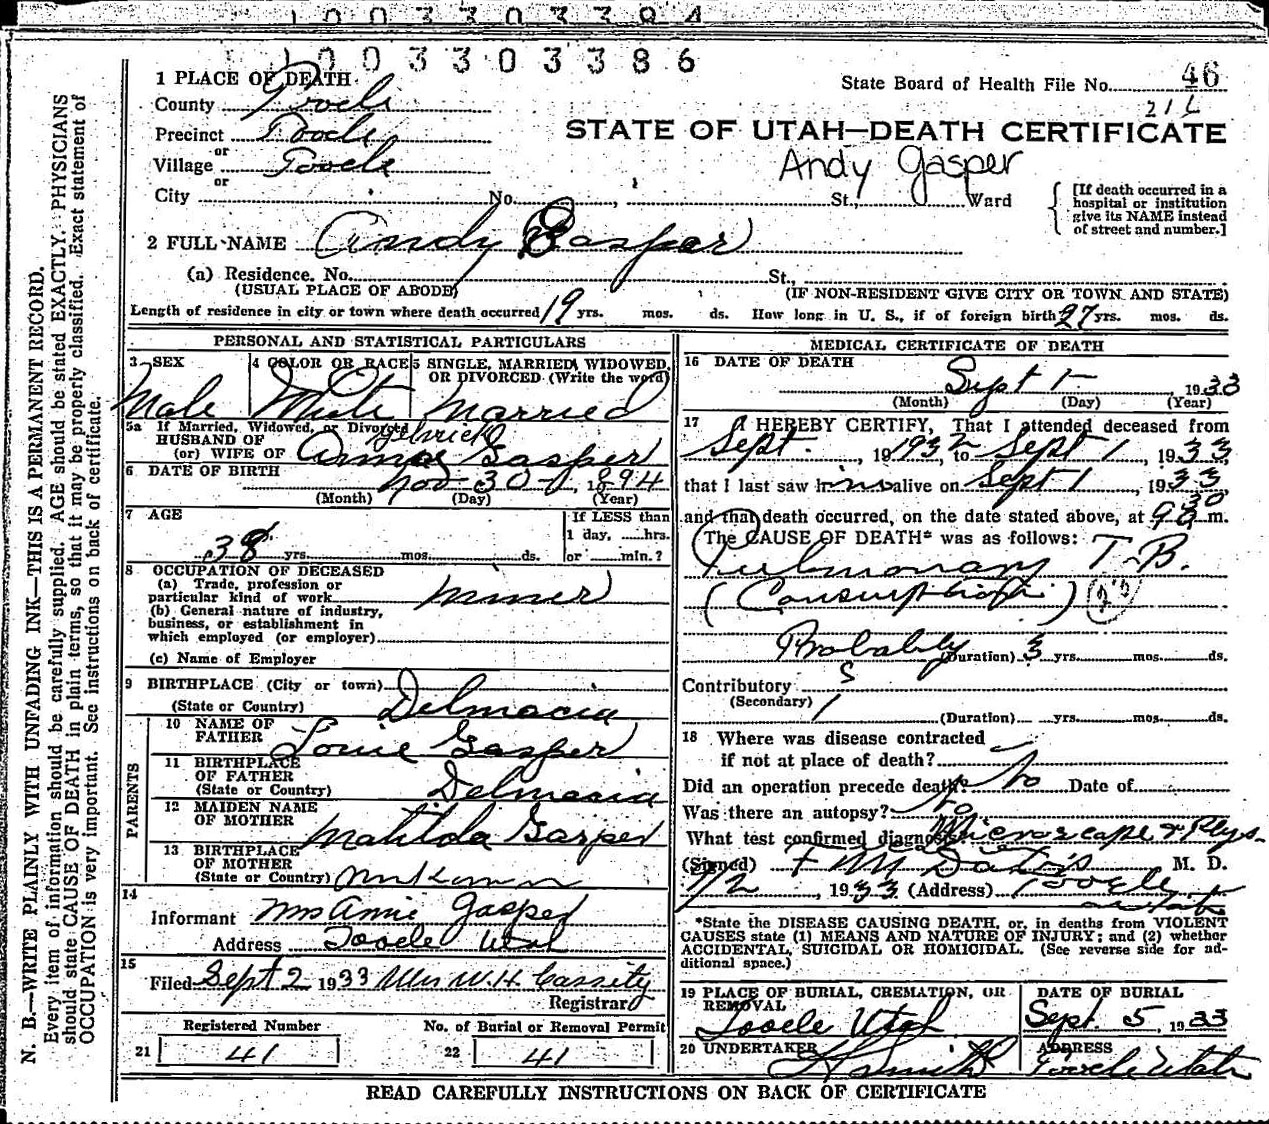 1003303386
1 PLACE OF DEATH
State Board of Health File No. 46
County Tooele
21L
Precinct Tooele
STATE OF UTAH—DEATH CERTIFICATE
or
Village Tooele
Andy Gasper
or
City No. , St., Ward
[If death occurred in a
hospital or institution
give its NAME instead
of street and number.]
2 FULL NAME Andy Gasper
(a) Residence. No. St.,
(USUAL PLACE OF ABODE) (IF NON-RESIDENT GIVE CITY OR TOWN AND STATE)
Length of residence in city or town where death occurred 19 yrs. mos. ds. How long in U. S., if of foreign birth 27 yrs. mos. ds.
PERSONAL AND STATISTICAL PARTICULARS
3 SEX
Male
4 COLOR OR RACE
White
5 SINGLE, MARRIED, WIDOWED,
OR DIVORCED (Write the word)
Married
5a If Married, Widowed, or Divorced
HUSBAND OF
(or) WIFE OF Gasper
6 DATE OF BIRTH Nov 30 , 1894
(Month) (Day) (Year)
7 AGE
38 yrs. mos. ds.
If LESS than
1 day, hrs.
or min.?
8 OCCUPATION OF DECEASED
(a) Trade, profession or
particular kind of work miner
(b) General nature of industry,
business, or establishment in
which employed (or employer)
(c) Name of Employer
9 BIRTHPLACE (City or town)
(State or Country) Delmacia
PARENTS
10 NAME OF
FATHER Louie Gasper
11 BIRTHPLACE
OF FATHER
(State or Country) Delmacia
12 MAIDEN NAME
OF MOTHER Matilda Gasper
13 BIRTHPLACE
OF MOTHER
(State or Country) unknown
14
Informant Mrs Annie Gasper
Address Tooele Utah
15
Filed Sept 2 1933 Mrs W. H. Cassity
Registrar
Registered Number
21 41
No. of Burial or Removal Permit
22 41
MEDICAL CERTIFICATE OF DEATH
16 DATE OF DEATH
Sept 1 1933
(Month) (Day) (Year)
17 I HEREBY CERTIFY, That I attended deceased from
Sept. , 1932 to Sept 1 , 1933
that I last saw him alive on Sept 1 , 1933
and that death occurred, on the date stated above, at 9 30 a m.
The CAUSE OF DEATH* was as follows:
Pulmonary T-B.
(Consumption)
Probably (Duration) 3 yrs. mos. ds.
Contributory
(Secondary)
(Duration) yrs. mos. ds.
18 Where was disease contracted
if not at place of death?
Did an operation precede death? No Date of
Was there an autopsy? No
What test confirmed diagnosis? Microscope & Phys.
(Signed) M. D.
9/2 , 1933 (Address) Tooele
Utah
*State the DISEASE CAUSING DEATH, or, in deaths from VIOLENT
CAUSES state (1) MEANS AND NATURE OF INJURY; and (2) whether
ACCIDENTAL, SUICIDAL OR HOMICIDAL. (See reverse side for ad-
ditional space.)
19 PLACE OF BURIAL, CREMATION, OR
REMOVAL
Tooele Utah
DATE OF BURIAL
Sept. 5 , 1933
20 UNDERTAKER
ADDRESS
Tooele Utah
READ CAREFULLY INSTRUCTIONS ON BACK OF CERTIFICATE
N. B.—WRITE PLAINLY WITH UNFADING INK—THIS IS A PERMANENT RECORD.
Every item of information should be carefully supplied. AGE should be stated EXACTLY. PHYSICIANS
should state CAUSE OF DEATH in plain terms, so that it may be properly classified. Exact statement of
OCCUPATION is very important. See instructions on back of certificate.